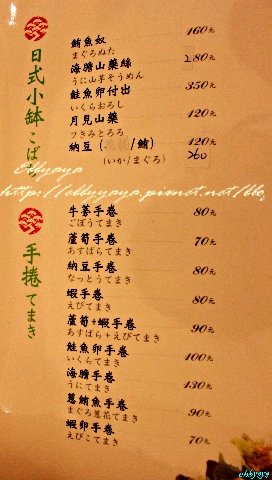 日式小鉢こばち
鮪魚奴 160元
まぐろぬた
海膽山藥絲 280元
うに山芋そうめん
鮭魚卵付出 350元
いくらおろし
月見山藥 120元
つきみとろろ
納豆 ( /鮪) 120元
(いか/まぐろ) 260
Ebbyaya
http://ebbyaya.pixnet.net/blo
手捲てまき
牛蒡手卷 80元
ごぼうてまき
蘆筍手卷 70元
あすぱらてまき
納豆手卷 80元
なっとうてまき
蝦手卷 80元
えびてまき
蘆筍+蝦手卷 90元
あすぱら+えびてまき
鮭魚卵手卷 100元
いくらてまき
海膽手卷 130元
うにてまき
蔥鮪魚手卷 90元
まぐろ蔥花てまき
蝦卵手卷 70元
えびこてまき
ebbyaya